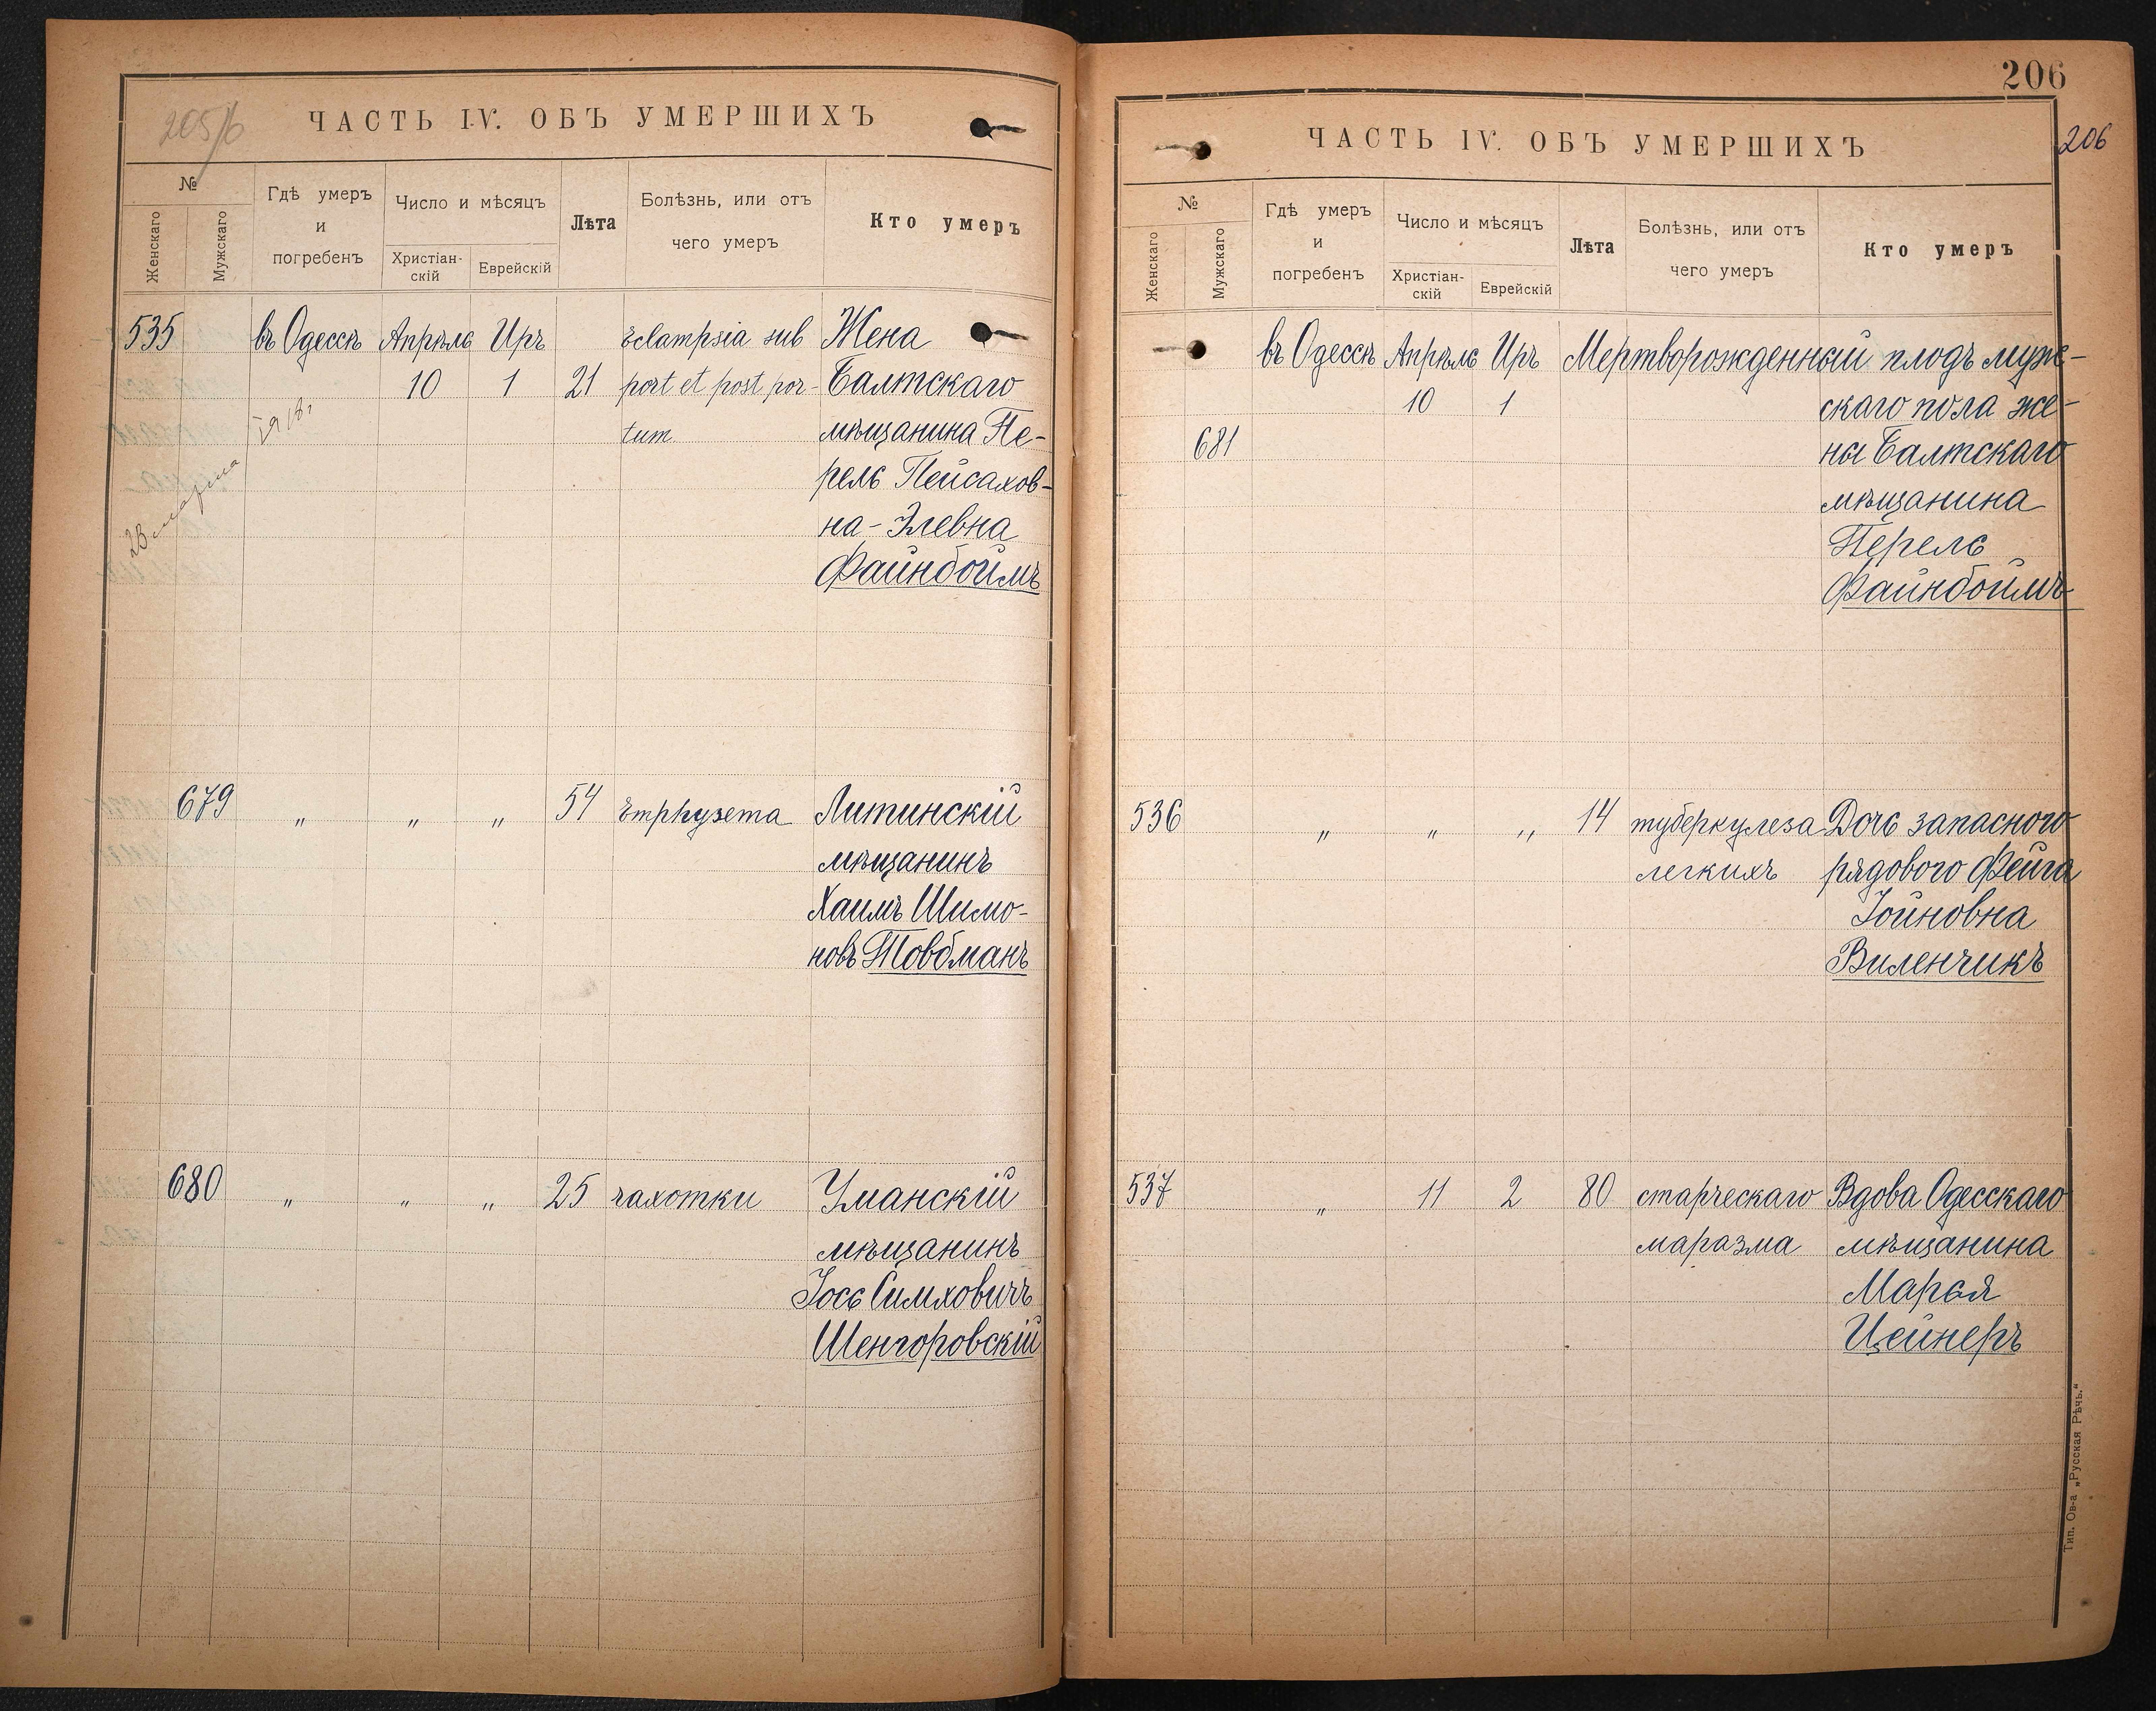 205/б
ЧАСТЬ IV. ОБЪ УМЕРШИХЪ
№
Женскаго
Мужскаго
Гдѣ умеръ
и
погребенъ
Число и мѣсяцъ
Христіан-
скій
Еврейскій
Лѣта
Болѣзнь, или отъ
чего умеръ
Кто умеръ
535 въ Одессѣ Апрѣль Иръ Eclampsia sub Жена
10 1 21 port et post por- Балтскаго
tum мѣщанина Пе-
рель Пейсахов-
на-Элевна
Файнбоймъ
23 марта
679 „ „ „ 54 Emphysema Литинскій
мѣщанинъ
Хаимъ Шимо-
новъ Товбманъ
680 „ „ „ 25 чахотки Уманскій
мѣщанинъ
Іось Симховичъ
Шенгоровскій
206
206
ЧАСТЬ IV. ОБЪ УМЕРШИХЪ
№
Женскаго
Мужскаго
Гдѣ умеръ
и
погребенъ
Число и мѣсяцъ
Христіан-
скій
Еврейскій
Лѣта
Болѣзнь, или отъ
чего умеръ
Кто умеръ
въ Одессѣ Апрѣль Иръ Мертворожденный плодъ муж-
10 1 скаго пола же-
681 ны Балтскаго
мѣщанина
Перель
Файнбоймъ
536 „ „ „ 14 туберкулеза Дочь запасного
легкихъ рядового Фейга
Іойновна
Виленчикъ
537 „ 11 2 80 старческаго Вдова Одесскаго
маразма мѣщанина
Марья
Цейнеръ
Тип. Ов-а „Русская Рѣчь.“